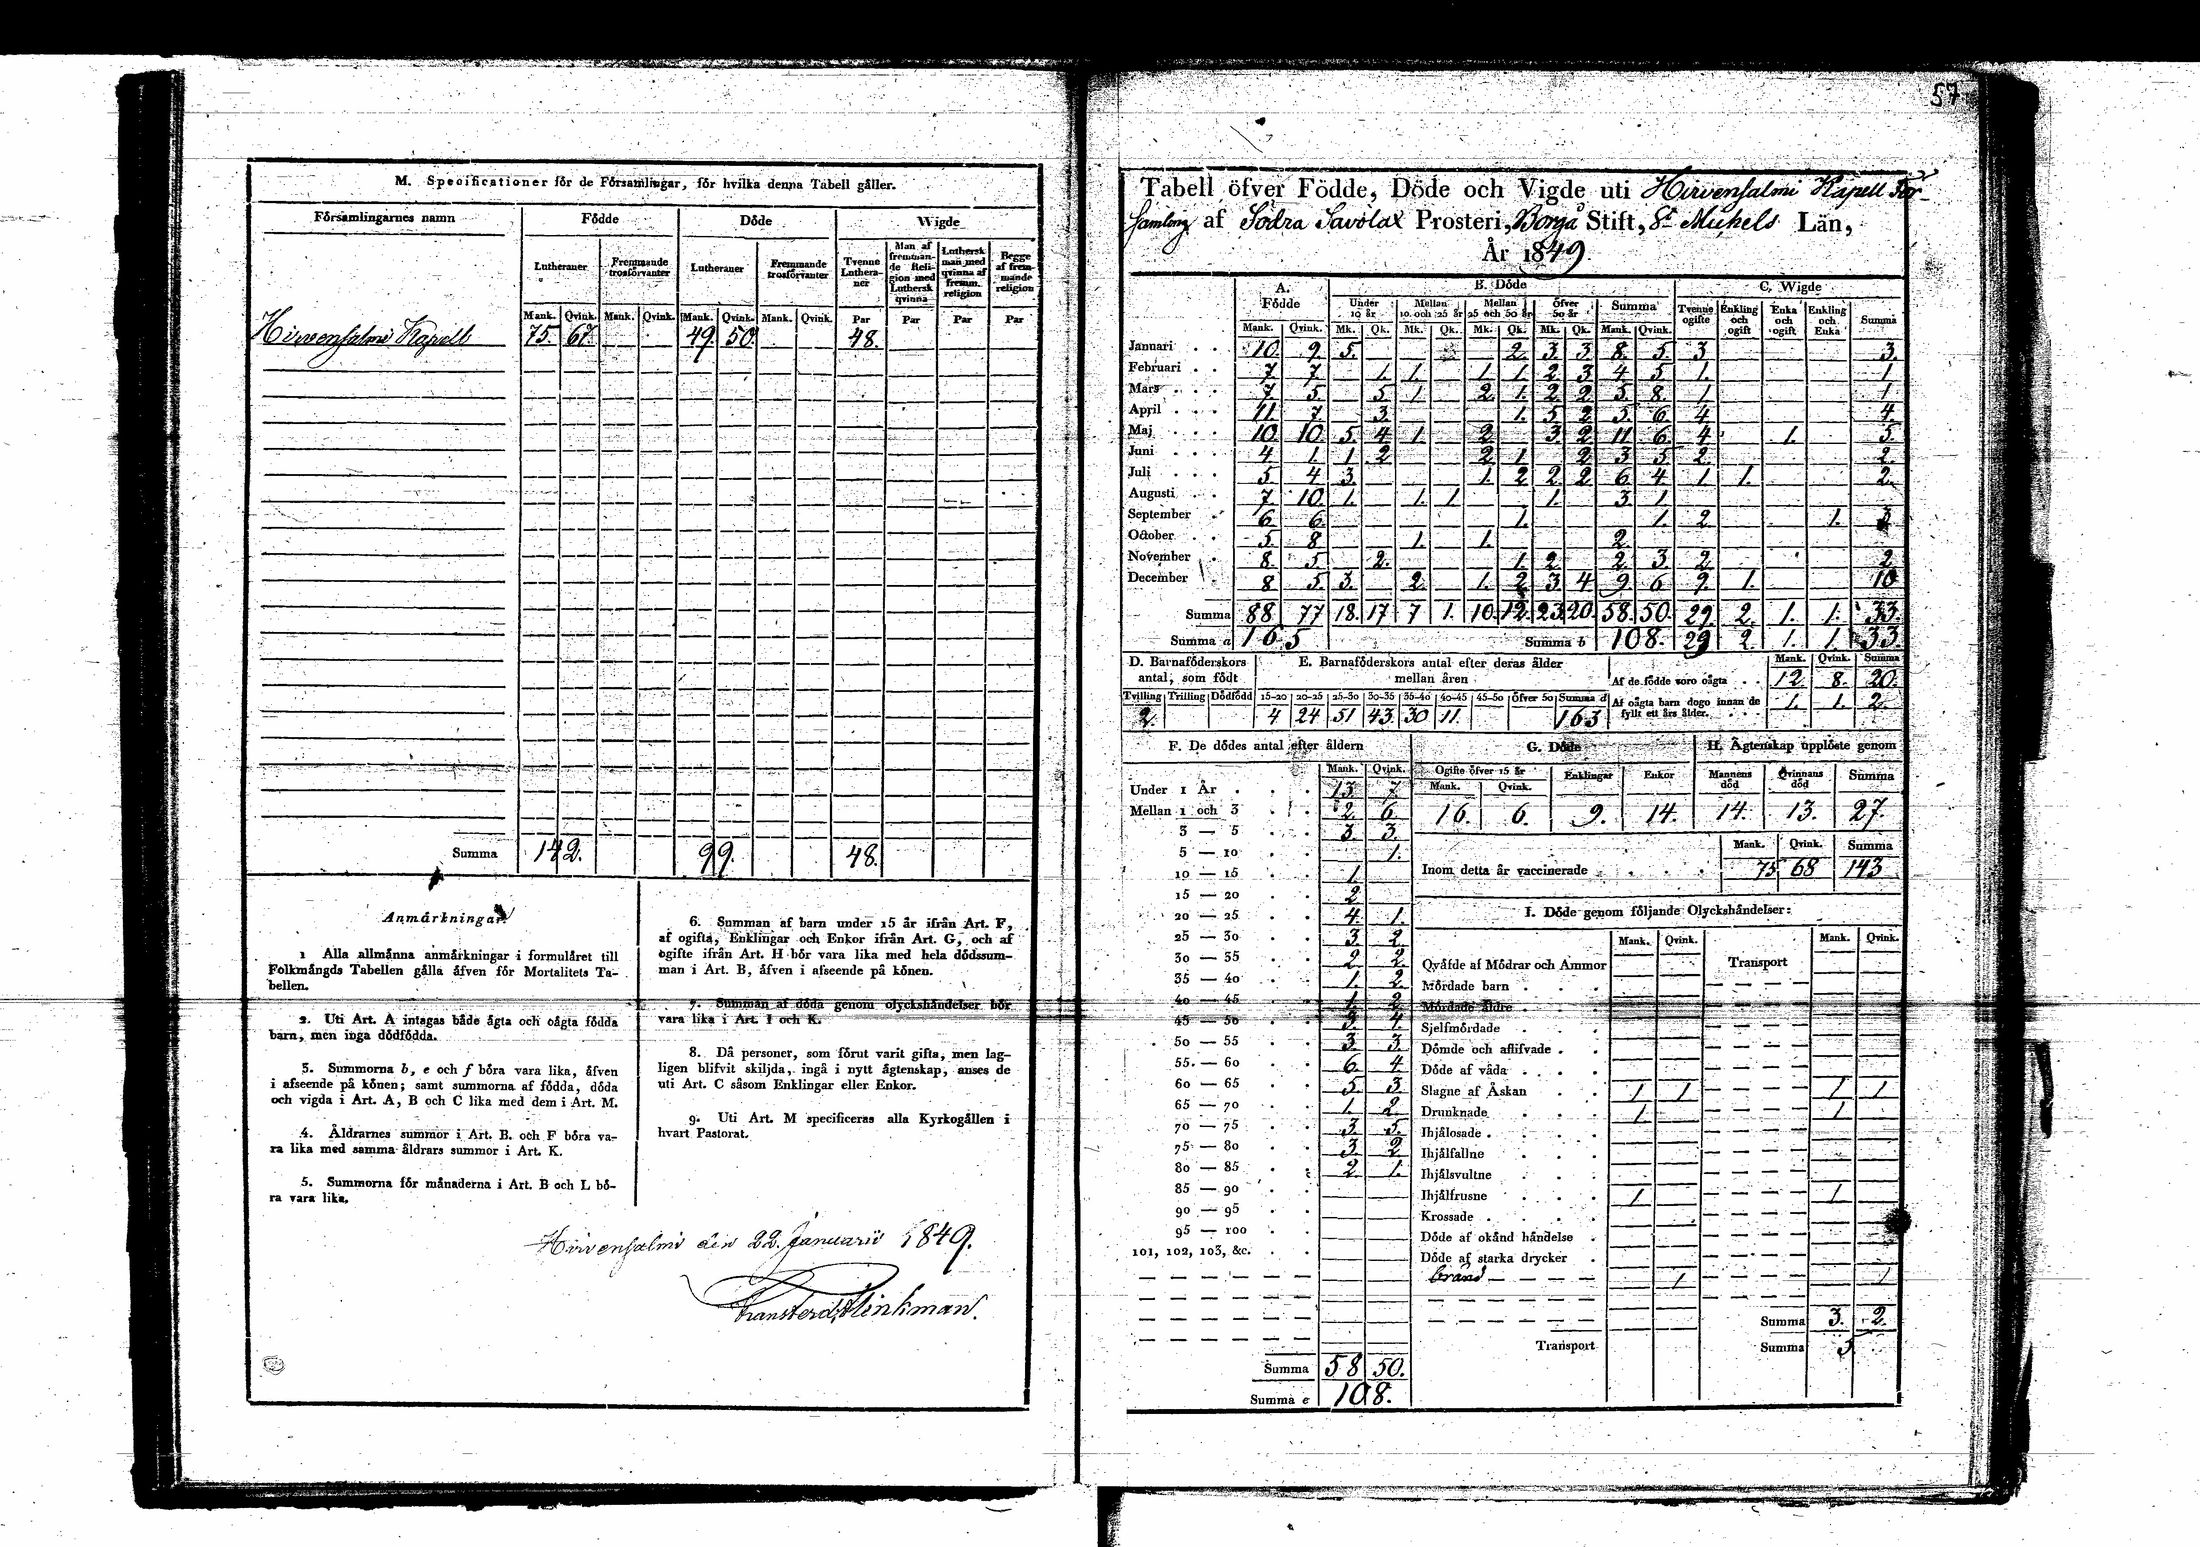 57
M. Specificationer för de Församlingar, för hvilka denna Tabell gäller.
Församlingarnes namn | Födde | Döde | Wigde
Lutheraner | Fremmande trosförvanter | Lutheraner | Fremmande trosförvanter | Tvenne Lutheraner | Man af fremmande Religion med Luthersk qvinna | Luthersk man med qvinna af fremm. religion | Begge af fremmande religion
Mank. Qvink. Mank. Qvink. Mank. Qvink. Mank. Qvink. Par Par Par Par
Hirvensalmi Kapell 75. 67. 49. 50. 48.
Summa 142. 99. 48.
Anmärkningar
1 Alla allmänna anmärkningar i formuläret till
Folkmängds Tabellen gälla äfven för Mortalitets Ta-
bellen.
2. Uti Art. A intagas både ägta och oägta födda
barn, men inga dödfödda.
3. Summorna b, e och f böra vara lika, äfven
i afseende på könen; samt summorna af födda, döda
och vigda i Art. A, B och C lika med dem i Art. M.
4. Åldrarnes summor i Art. B. och F böra va-
ra lika med samma åldrars summor i Art. K.
5. Summorna för månaderna i Art. B och L bö-
ra vara lika.
6. Summan af barn under 15 år ifrån Art. F,
af ogifta, Enklingar och Enkor ifrån Art. G, och af
ogifte ifrån Art. H bör vara lika med hela dödssum-
man i Art. B, äfven i afseende på könen.
7. Summan af döda genom olyckshändelser bör
vara lika i Art. I och K.
8. Då personer, som förut varit gifta, men lag-
ligen blifvit skiljda, ingå i nytt ägtenskap, anses de
uti Art. C såsom Enklingar eller Enkor.
9. Uti Art. M specificeras alla Kyrkogällen i
hvart Pastorat.
Hirvensalmi den 22. Januarii 1849.
Tabell öfver Födde, Döde och Vigde uti Hirvensalmi Kapell För-
samling af Södra Savolax Prosteri, Borgå Stift, St Michels Län,
År 1849.
A. Födde | B. Döde | C. Wigde
Under 10 år | Mellan 10 och 25 år | Mellan 25 och 50 år | Öfver 50 år | Summa | Tvenne ogifte | Enkling och ogift | Enka och ogift | Enkling och Enka | Summa
Mank. Qvink. Mk. Qk. Mk. Qk. Mk. Qk. Mk. Qk. Mank. Qvink.
Januari 10. 9. 5. 2. 3. 3. 8. 5. 3. 3.
Februari 7. 7. 1. 1. 1. 1. 2. 3. 4. 5. 1. 1
Mars 7. 5. 5. 1. 2. 1. 2. 2. 5. 8. 1. 1
April 11. 7. 3. 1. 5. 2. 5. 6. 4. 4.
Maj 10. 10. 5. 4. 1. 2. 3. 2. 11. 6. 4. 1. 5.
Juni 4. 1. 1. 2. 2. 1. 2. 3. 5. 2. 2.
Juli 5. 4. 3. 1. 2. 2. 2. 6. 4. 1. 1. 2.
Augusti 7. 10. 1. 1. 1. 1. 3. 1.
September 6. 6. 1. 1. 2. 1. 3
October 5. 8. 1. 1. 2.
November 8. 5. 2. 1. 2. 2. 3. 2. 2.
December 8 5. 3. 2. 1. 2. 3. 4. 9. 6. 9. 1. 10
Summa 88. 77. 18. 17. 7 1. 10. 12. 23. 20. 58. 50. 29. 2. 1. 1. 33.
Summa a 165 Summa b 108. 29 2. 1. 1. 33.
D. Barnaföderskors antal, som födt
Tvilling Trilling Dödfödd
2.
E. Barnaföderskors antal efter deras ålder mellan åren
15-20 20-25 25-30 30-35 35-40 40-45 45-50 Öfver 50 Summa d
4 24 51 43. 30 11. 163
Mank. Qvink. Summa
Af de födde voro oägta 12. 8. 20.
Af oägta barn dogo innan de fyllt ett års ålder. 1. 1. 2.
F. De dödes antal efter åldern
Mank. Qvink.
Under 1 År 13. 7.
Mellan 1 och 3 2. 6.
3 — 5 3. 3.
5 — 10 1.
10 — 15 1.
15 — 20 2.
20 — 25 4. 1.
25 — 30 3. 2.
30 — 35 2. 2.
35 — 40 1. 2.
40 — 45 1. 2.
45 — 50 3. 4.
50 — 55 3. 3.
55 — 60 6. 4
60 — 65 5. 3
65 — 70 1. 2.
70 — 75 3. 5.
75 — 80 3. 2
80 — 85 2. 1.
85 — 90
90 — 95
95 — 100
101, 102, 103, &c.
Summa 58 50.
Summa e 108.
G. Döde
Ogifte öfver 15 år | Enklingar | Enkor
Mank. Qvink.
16. 6. 9. 14.
H. Ägtenskap upplöste genom
Mannens död | Qvinnans död | Summa
14. 13. 27.
Mank. Qvink. Summa
Inom detta år vaccinerade 75 68 143
I. Döde genom följande Olyckshändelser:
Mank. Qvink. Mank. Qvink.
Qväfde af Mödrar och Ammor Transport
Mördade barn
Mördade äldre
Sjelfmördade
Dömde och aflifvade
Döde af våda
Slagne af Åskan 1 1 1 1
Drunknade 1. 1
Ihjälosade
Ihjälfallne
Ihjälsvultne
Ihjälfrusne 1. 1
Krossade
Döde af okänd händelse
Döde af starka drycker
bränd 1 1
Summa 3. 2.
Transport Summa 5